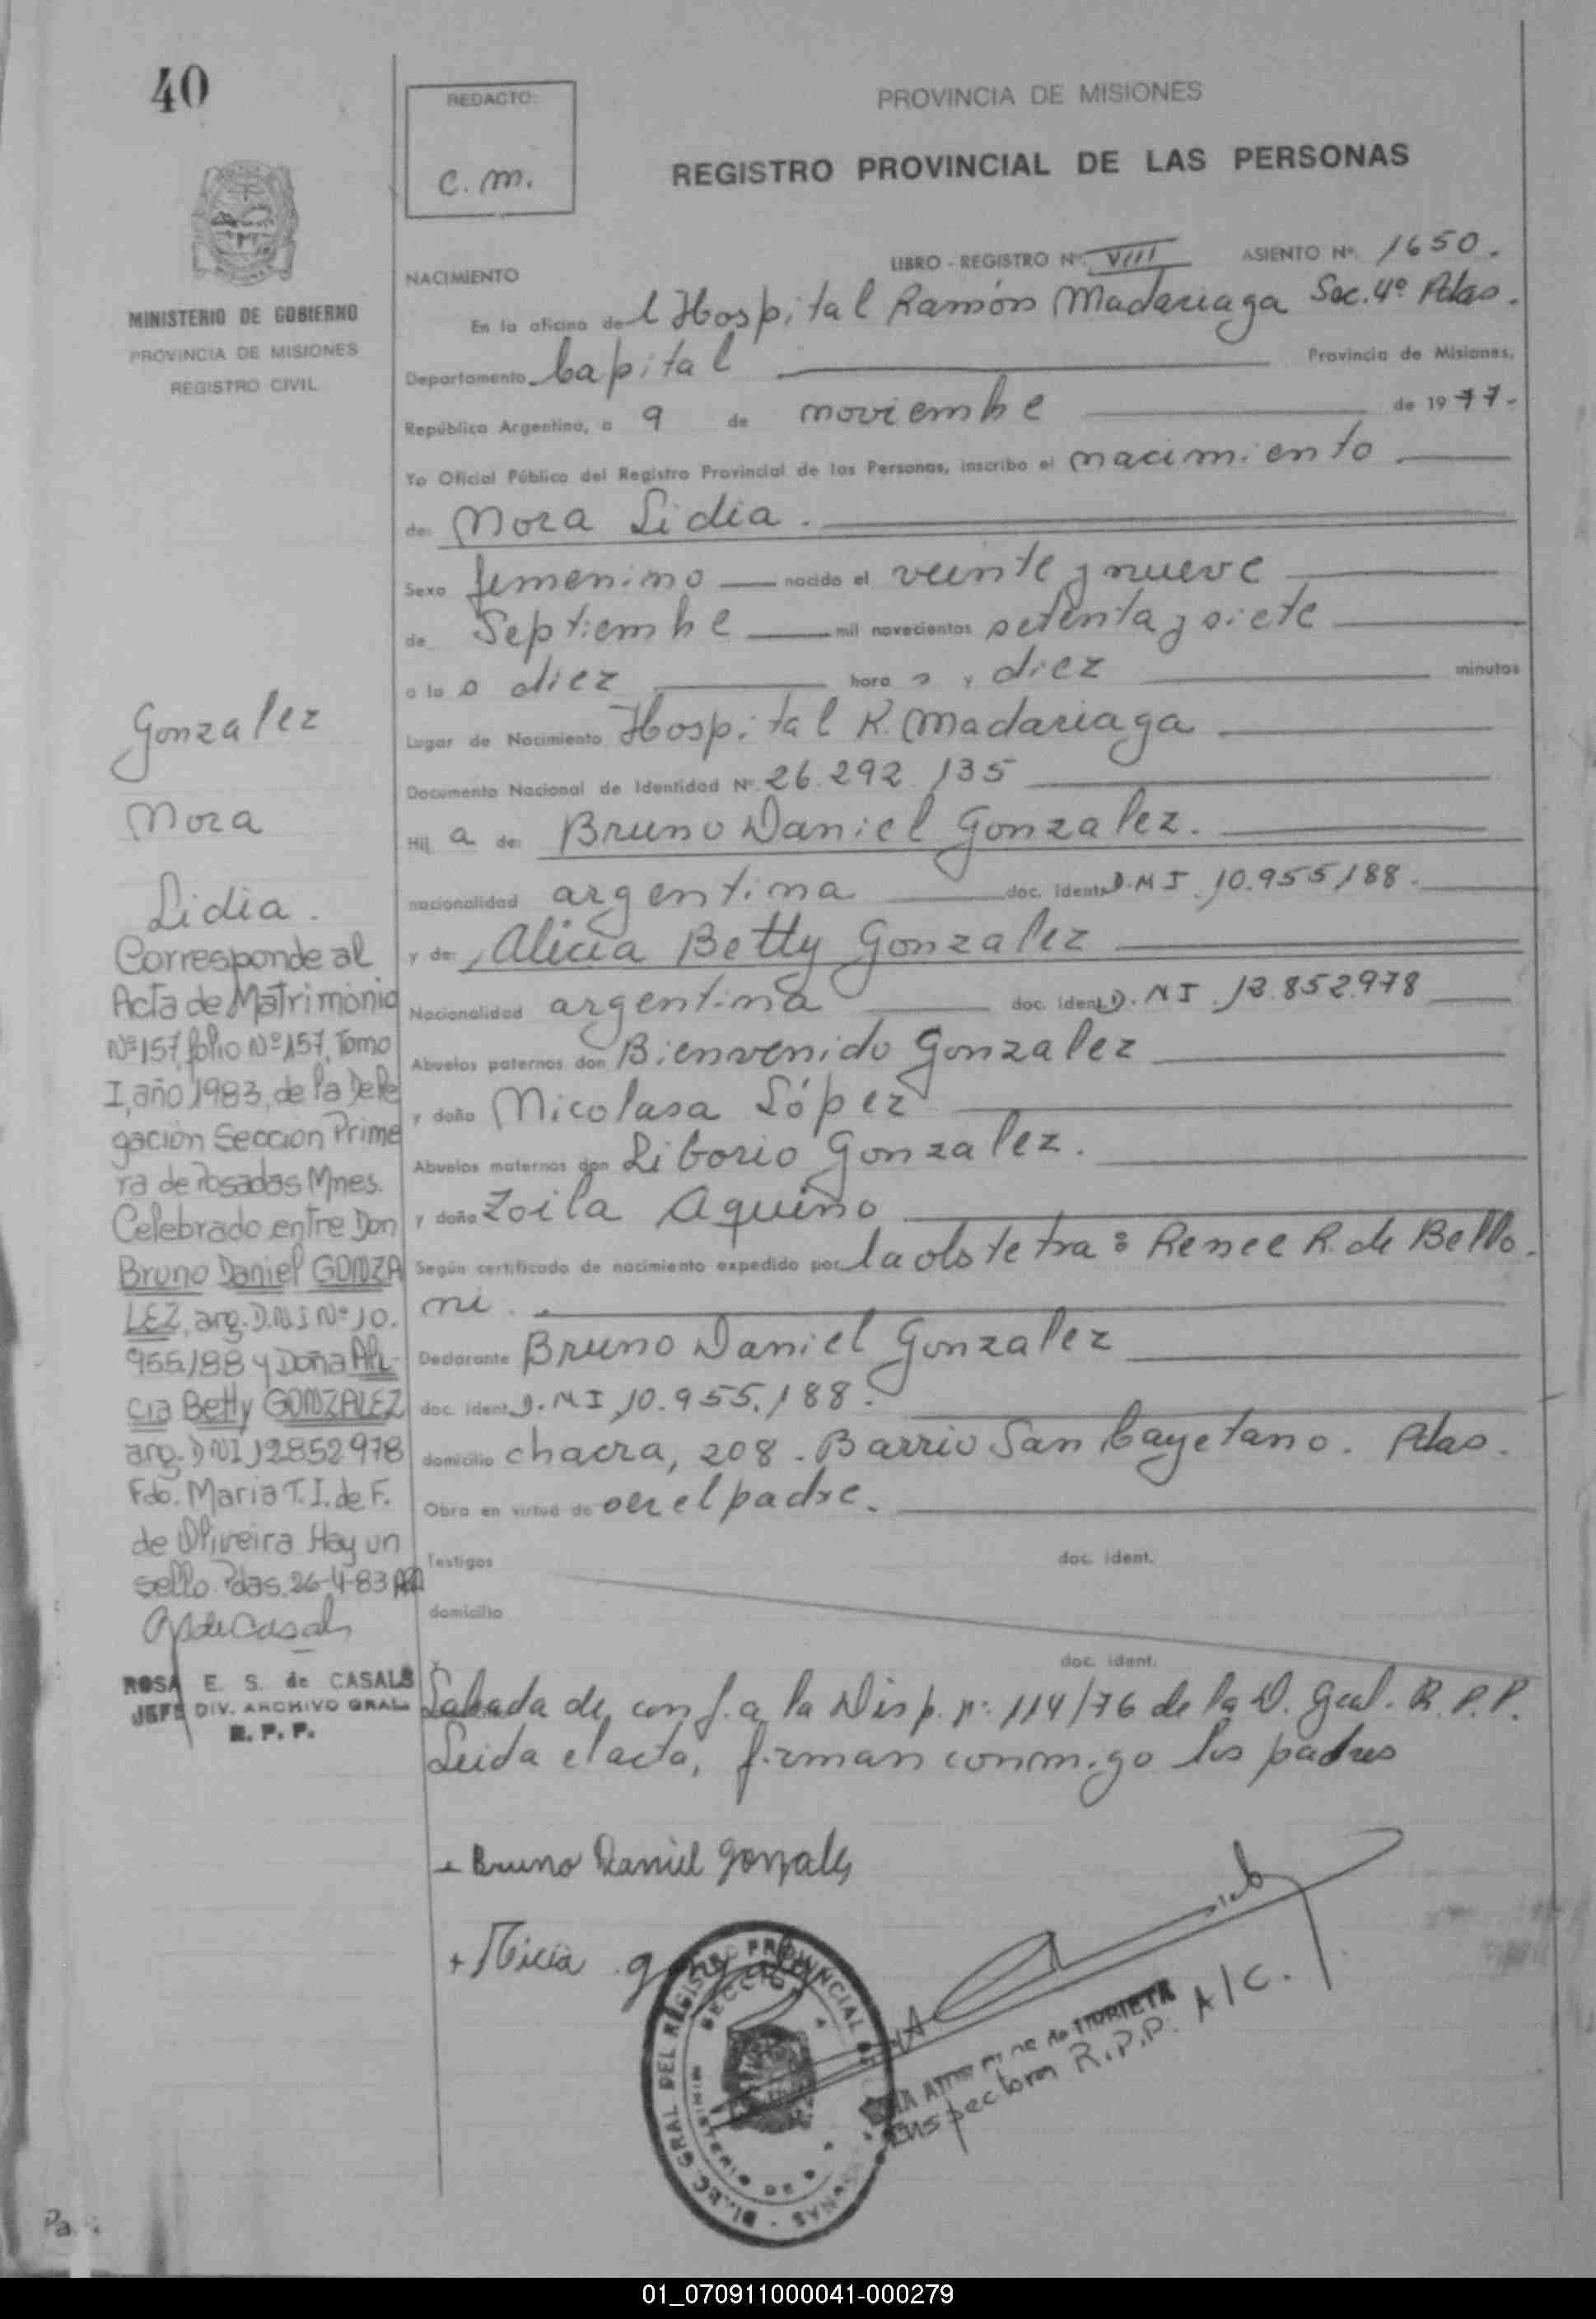 40
REDACTO:
C. M.
PROVINCIA DE MISIONES
REGISTRO PROVINCIAL DE LAS PERSONAS
MINISTERIO DE GOBIERNO
PROVINCIA DE MISIONES
REGISTRO CIVIL
NACIMIENTO
LIBRO - REGISTRO Nº VIII ASIENTO Nº 1650.
En la oficina del Hospital Ramón Madariaga Sec. 4º Pdas.
Departamento Capital Provincia de Misiones,
República Argentina, a 9 de noviembre de 1977.-
Yo Oficial Público del Registro Provincial de las Personas, inscribo el nacimiento
de: Nora Lidia.
Sexo femenino nacido el veinte y nueve
de Septiembre mil novecientos setenta y siete
a las diez horas y diez minutos
Lugar de Nacimiento Hospital R. Madariaga
Documento Nacional de Identidad Nº 26.292.135
Hija de: Bruno Daniel Gonzalez.
nacionalidad argentina doc. ident. D.N.I. 10.955.188.
y de: Alicia Betty Gonzalez
Nacionalidad argentina doc. ident. D.N.I. 12.852.978
Abuelos paternos don Bienvenido Gonzalez
y doña Nicolasa López
Abuelos maternos don Liborio Gonzalez.
y doña Zoila Aquino
Según certificado de nacimiento expedido por la obstetra: Renee R. de Bello
ni.
Declarante Bruno Daniel Gonzalez
doc. ident. D.N.I. 10.955.188.
domicilio chacra, 208. Barrio San Cayetano. Pdas.
Obra en virtud de ser el padre.
Testigos doc. ident.
domicilio
doc. ident.
Labrada de conf. a la Disp. nº 114/76 de la D. Gral. R.P.P.
Leida el acta, firman conmigo los padres
Bruno Daniel Gonzalez
Alicia
Inspectora R.P.P. A/C.
Gonzalez
Nora
Lidia.
Corresponde al
Acta de Matrimonio
Nº 157, folio Nº 157, Tomo
I, año 1983, de la Dele
gación Sección Prime
ra de Posadas Mnes.
Celebrado entre Don
Bruno Daniel GONZA
LEZ, arg. D.N.I Nº 10.
955.188 y Doña Ali-
cia Betty GONZALEZ
arg. DNI 12852978
Fdo. Maria T. I. de F.
de Oliveira Hay un
sello. Pdas. 26-4-83
ROSA E. S. de CASALS
JEFE DIV. ARCHIVO GRAL.
R. P. P.
01_070911000041-000279